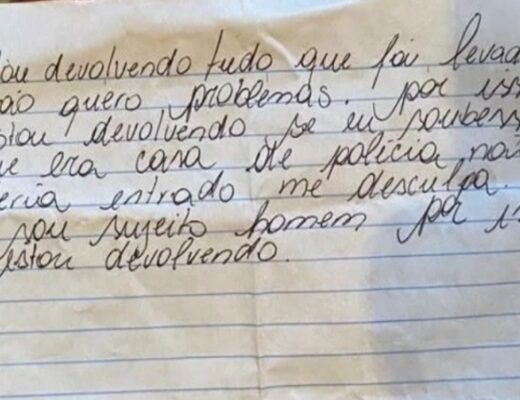 tou devolvendo tudo que foi levad
ão quero problemas. por iss
stou devolvendo se eu soubess
ue era casa de policia não
eria entrado me desculpa.
sou sujeito homem por is
estou devolvendo.